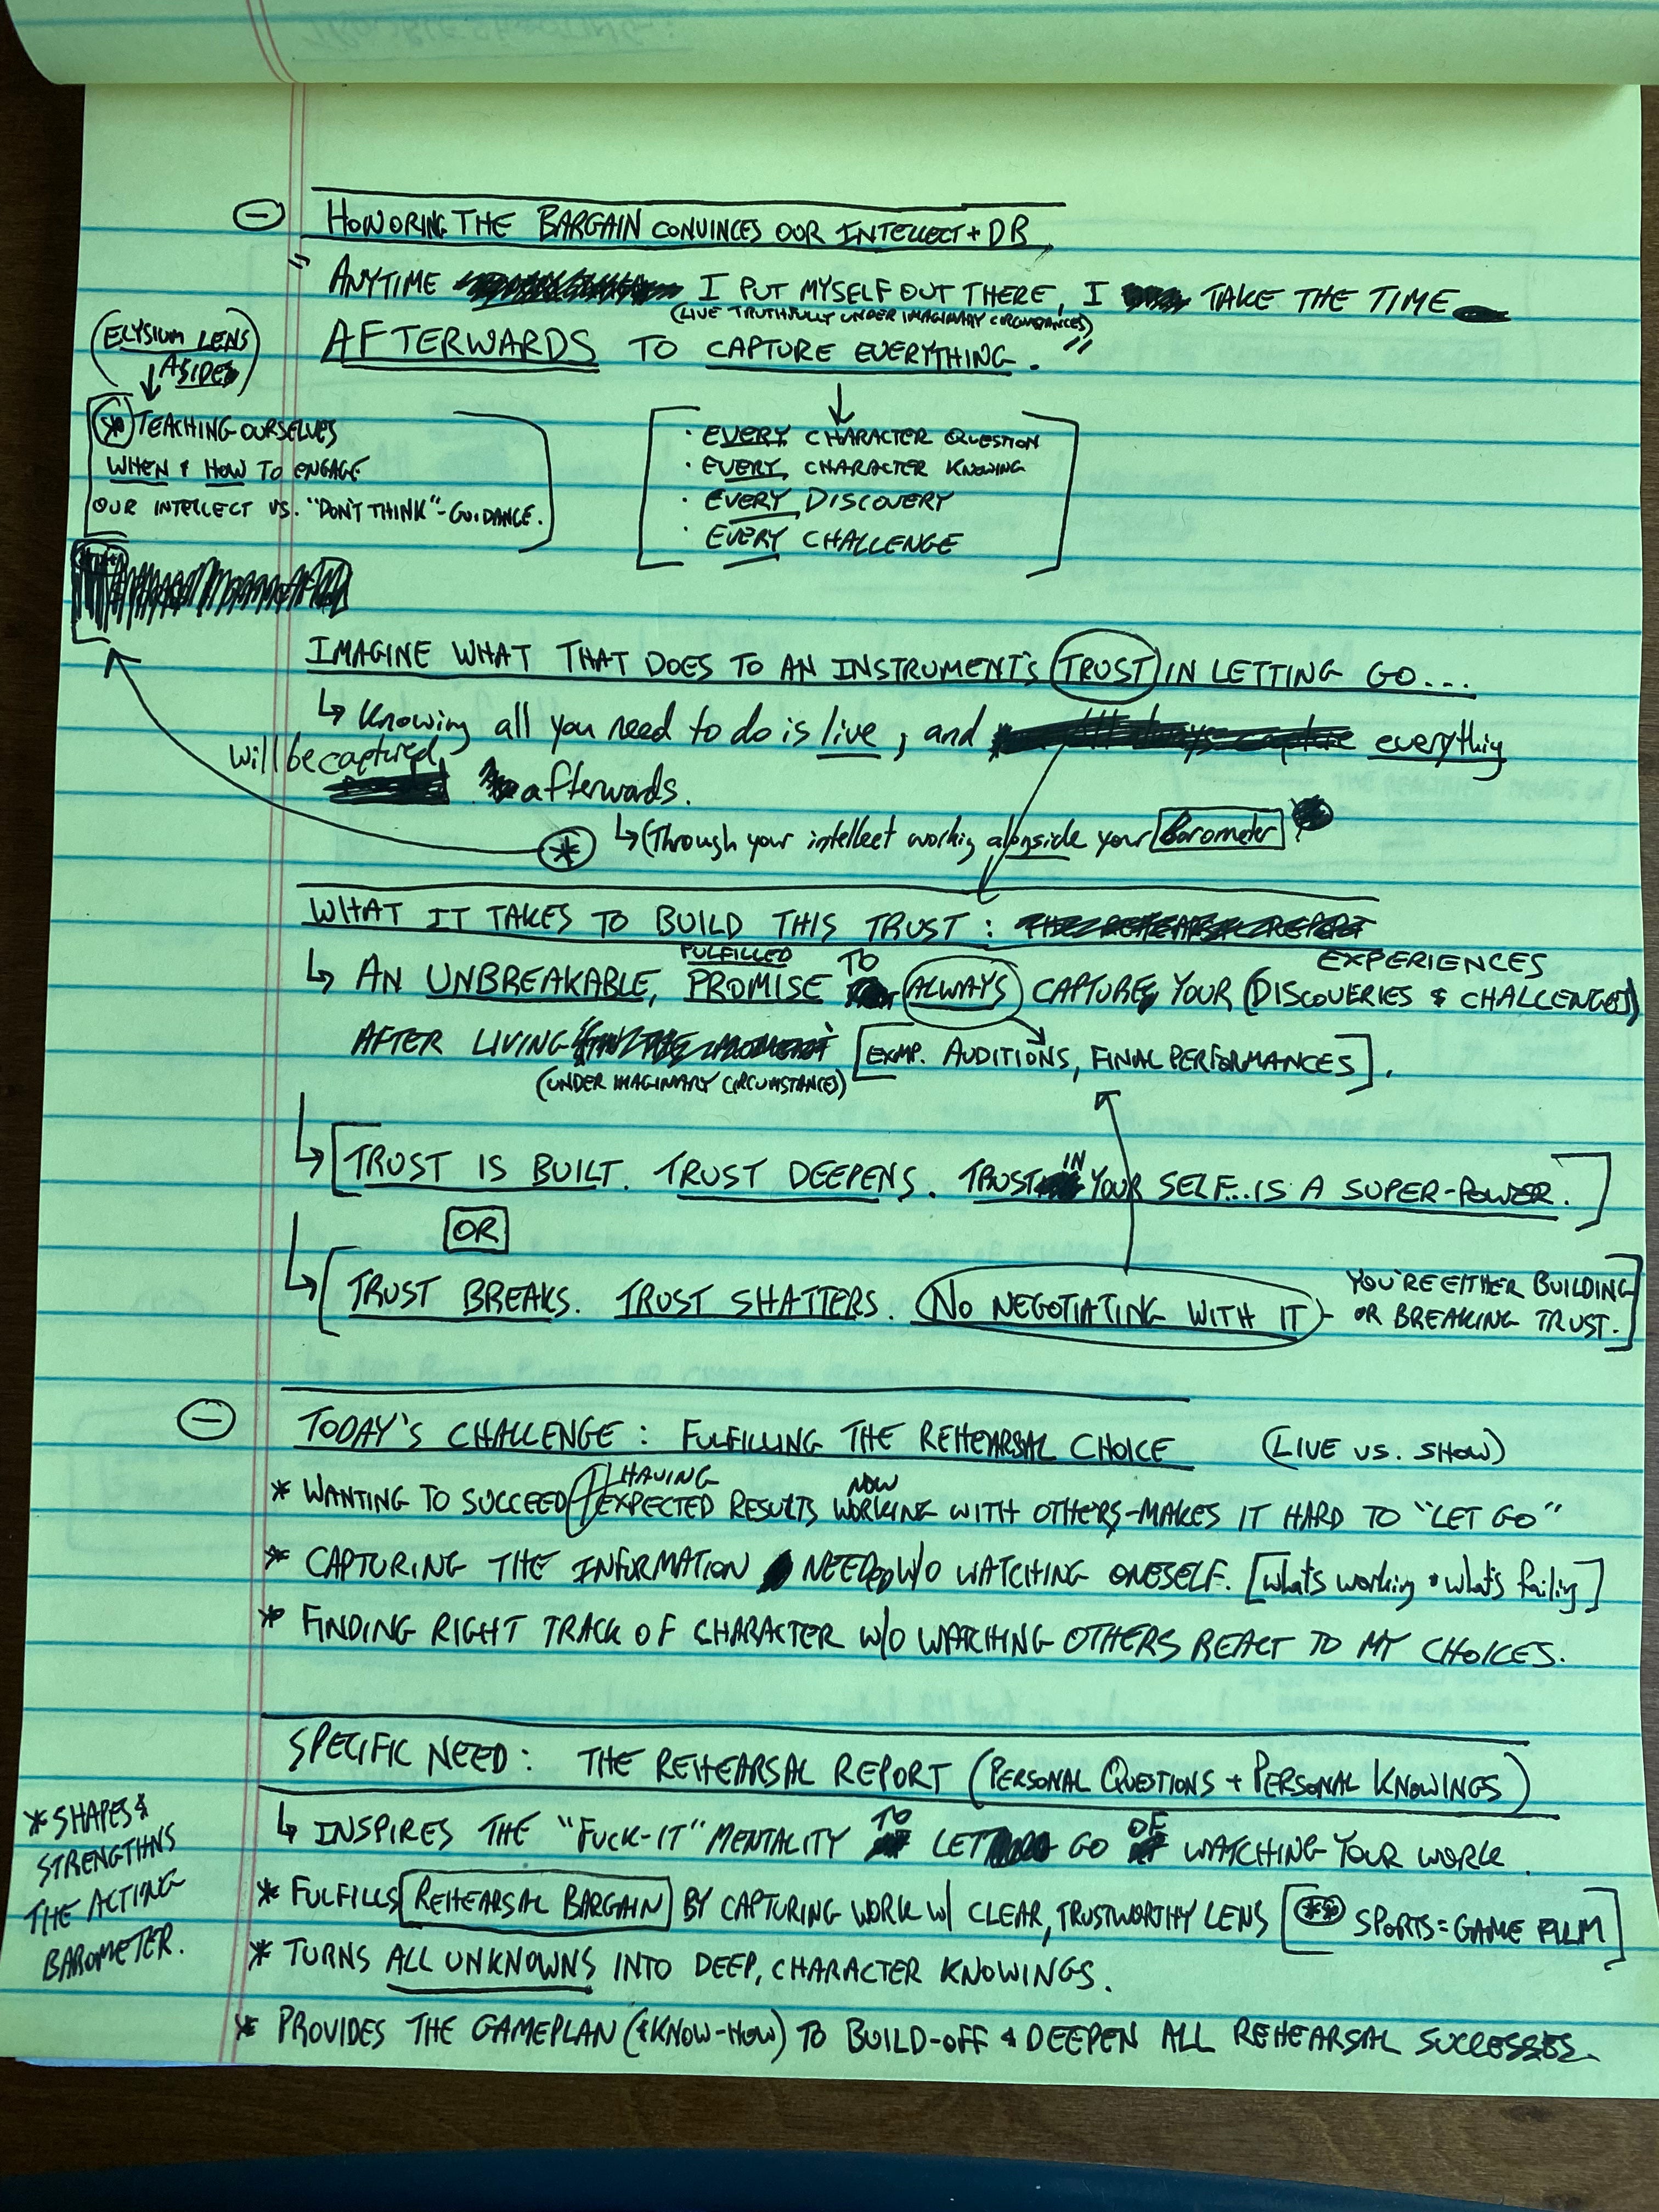 HONORING THE BARGAIN CONVINCES OUR INTELLECT + DB
"ANYTIME I PUT MYSELF OUT THERE, I TAKE THE TIME
(LIVE TRUTHFULLY UNDER IMAGINARY CIRCUMSTANCES)
AFTERWARDS TO CAPTURE EVERYTHING."
(ELYSIUM LENS
ASIDES)
* TEACHING OURSELVES
WHEN & HOW TO ENGAGE
OUR INTELLECT VS. "DON'T THINK"-GUIDANCE.
· EVERY CHARACTER QUESTION
· EVERY CHARACTER KNOWING
· EVERY DISCOVERY
· EVERY CHALLENGE
IMAGINE WHAT THAT DOES TO AN INSTRUMENT'S TRUST IN LETTING GO...
↳ Knowing all you need to do is live, and everything
will be captured afterwards.
* ↳ (Through your intellect working alongside your Barometer
WHAT IT TAKES TO BUILD THIS TRUST:
FULFILLED TO EXPERIENCES
↳ AN UNBREAKABLE, PROMISE ALWAYS CAPTURE YOUR (DISCOVERIES & CHALLENGES)
AFTER LIVING [EXMP. AUDITIONS, FINAL PERFORMANCES].
(UNDER IMAGINARY CIRCUMSTANCE)
↳ [TRUST IS BUILT. TRUST DEEPENS. TRUST IN YOUR SELF...IS A SUPER-POWER.]
OR
↳ [TRUST BREAKS. TRUST SHATTERS. (NO NEGOTIATING WITH IT) - YOU'RE EITHER BUILDING
OR BREAKING TRUST.]
TODAY'S CHALLENGE: FULFILLING THE REHEARSAL CHOICE (LIVE VS. SHOW)
HAVING NOW
* WANTING TO SUCCEED + EXPECTED RESULTS WORKING WITH OTHERS-MAKES IT HARD TO "LET GO"
* CAPTURING THE INFORMATION NEEDED W/O WATCHING ONESELF. [what's working & what's failing]
* FINDING RIGHT TRACK OF CHARACTER W/O WATCHING OTHERS REACT TO MY CHOICES.
SPECIFIC NEED: THE REHEARSAL REPORT (PERSONAL QUESTIONS + PERSONAL KNOWINGS)
↳ INSPIRES THE "FUCK-IT" MENTALITY TO LET GO OF WATCHING YOUR WORK.
* SHAPES &
STRENGTHNS
THE ACTING
BAROMETER.
* FULFILLS REHEARSAL BARGAIN BY CAPTURING WORK W/ CLEAR, TRUSTWORTHY LENS [** SPORTS = GAME FILM]
* TURNS ALL UNKNOWNS INTO DEEP, CHARACTER KNOWINGS.
* PROVIDES THE GAMEPLAN (& KNOW-HOW) TO BUILD-OFF & DEEPEN ALL REHEARSAL SUCCESSES.